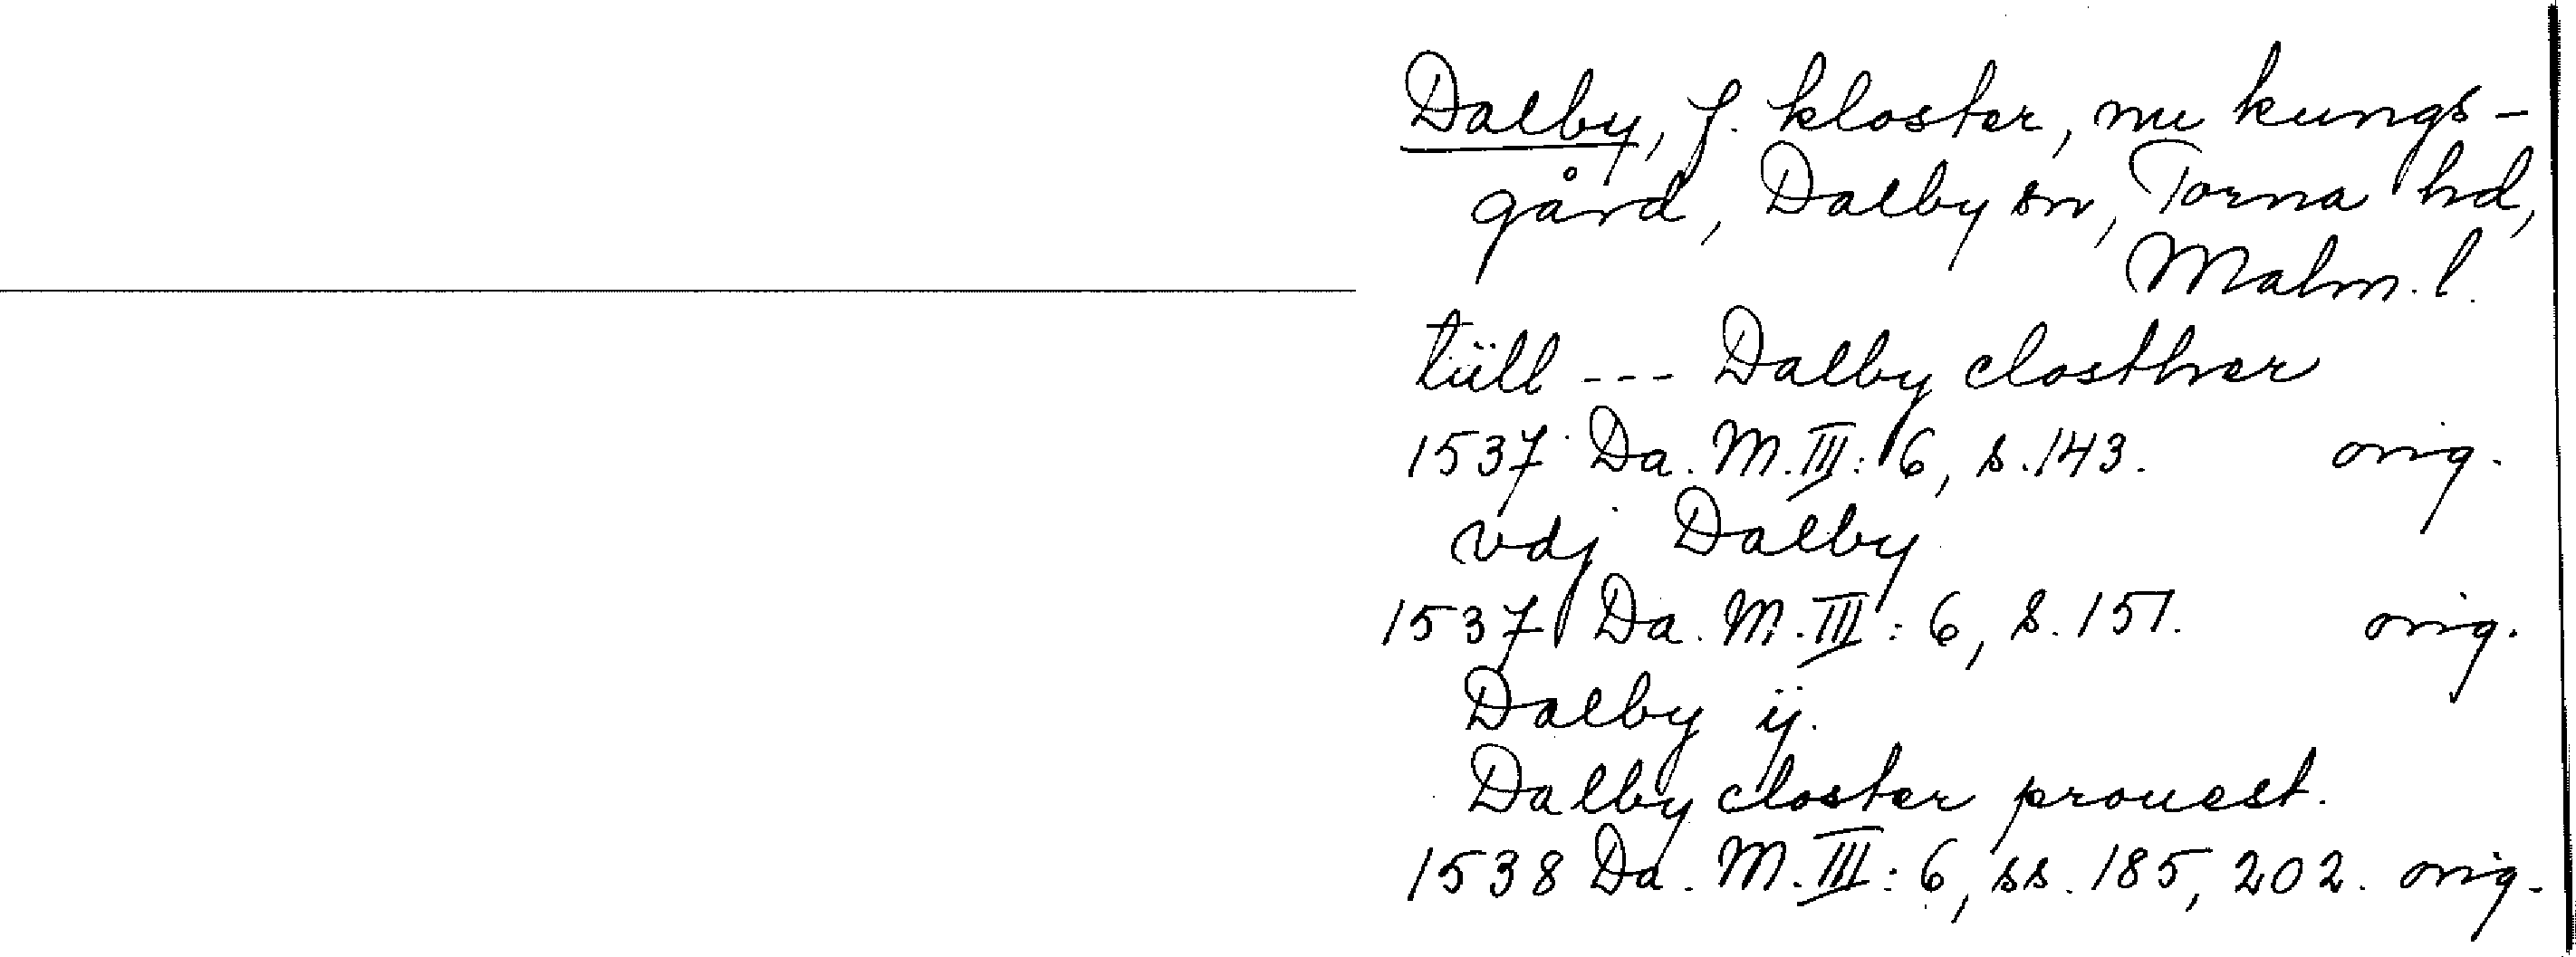 Dalby, f. kloster, nu kungs-
gård, Dalby sn, Torna hd,
Malm. l.
tiill --- Dalby closther
1537 Da. M. III: 6, s. 143. orig.
vdj Dalby
1537 Da. M. III: 6, s. 151. orig.
Dalby ij.
Dalby closter prouest.
1538 Da. M. III: 6, ss. 185, 202. orig.